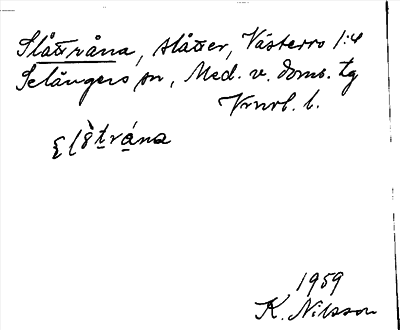 Slåttråna, slåtter, Västerro 1:4
Selångers sn, Med. v. doms. tg
Vrvl. l.
1959
K. Nilsson